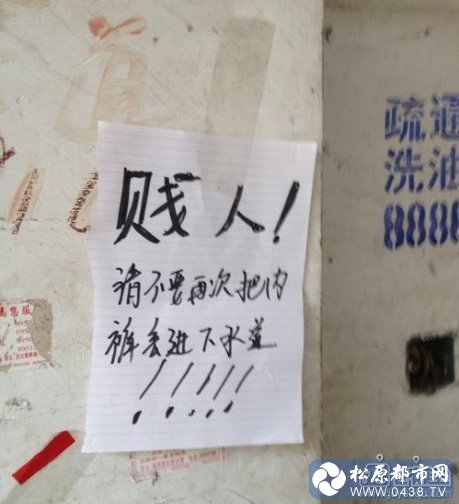 贱人!
请不要再次把内
裤丢进下水道
!!!!!
疏通
洗油
8888
松原都市网
www.0438.TV